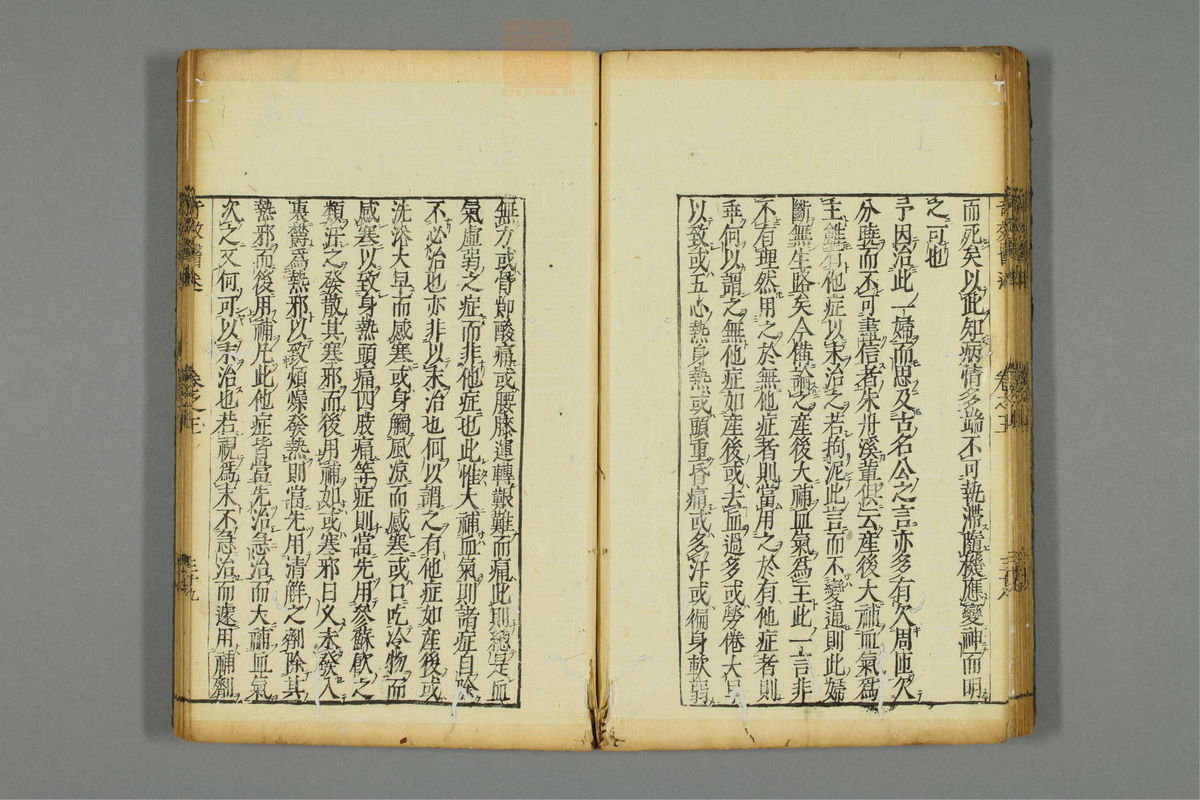 而死矣以此知病情多端不可執滯隨機應變神而明
之可也
予因治此一婦而思及古名公之言亦多有欠周匝欠
分曉而不可盡信者朱丹溪輩但云産後大補血氣爲
主雖有他症以末治之若拘泥此言而不變通則此婦
斷無生路矣今備論之産後大補血氣爲主此一言非
不有理然用之於無他症者則當用之於有他症者則
乖何以謂之無他症如産後或去血過多或勞倦大早
以致或五心熱身熱或頭重昏痛或多汗或徧身軟弱
無力或骨節酸痛或腰膝運轉艱難而痛此則總是血
氣虛弱之症而非他症也此惟大補血氣則諸症自除
不必治也亦非以末治也何以謂之有他症如産後或
洗浴大早而感寒或身觸風凉而感寒或口吃冷物而
感寒以致身熱頭痛四肢痛等症則當先用參蘇飮之
類汗之發散其寒邪而後用補如或寒邪日久未發入
裏欝爲熱邪以致煩燥發熱則當先用清觧之劑除其
熱邪而後用補凡此他症皆當先治急治而大補血氣
次之又何可以末治也若視爲末不急治而遽用補劑
奇效醫述
卷之二
三十九